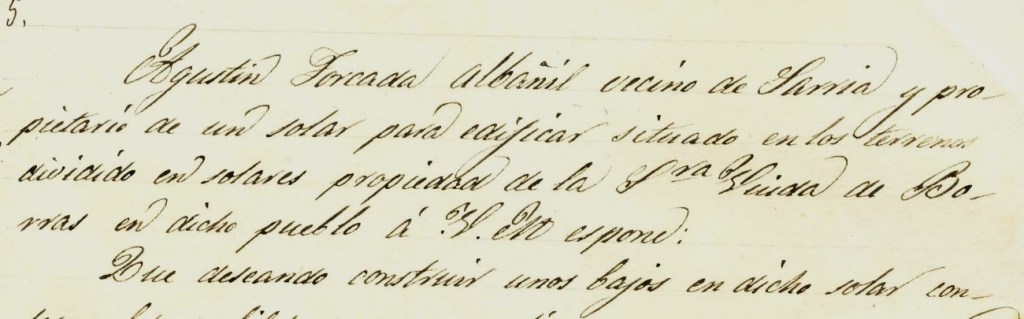 5.
Agustin Forcada albañil vecino de Sarria y pro-
pietario de un solar para edificar situado en los terrenos
dividido en solares propiedad de la Sra Viuda de Bo-
rras en dicho pueblo á V. M espone:
Que deseando construir unos bajos en dicho solar con-